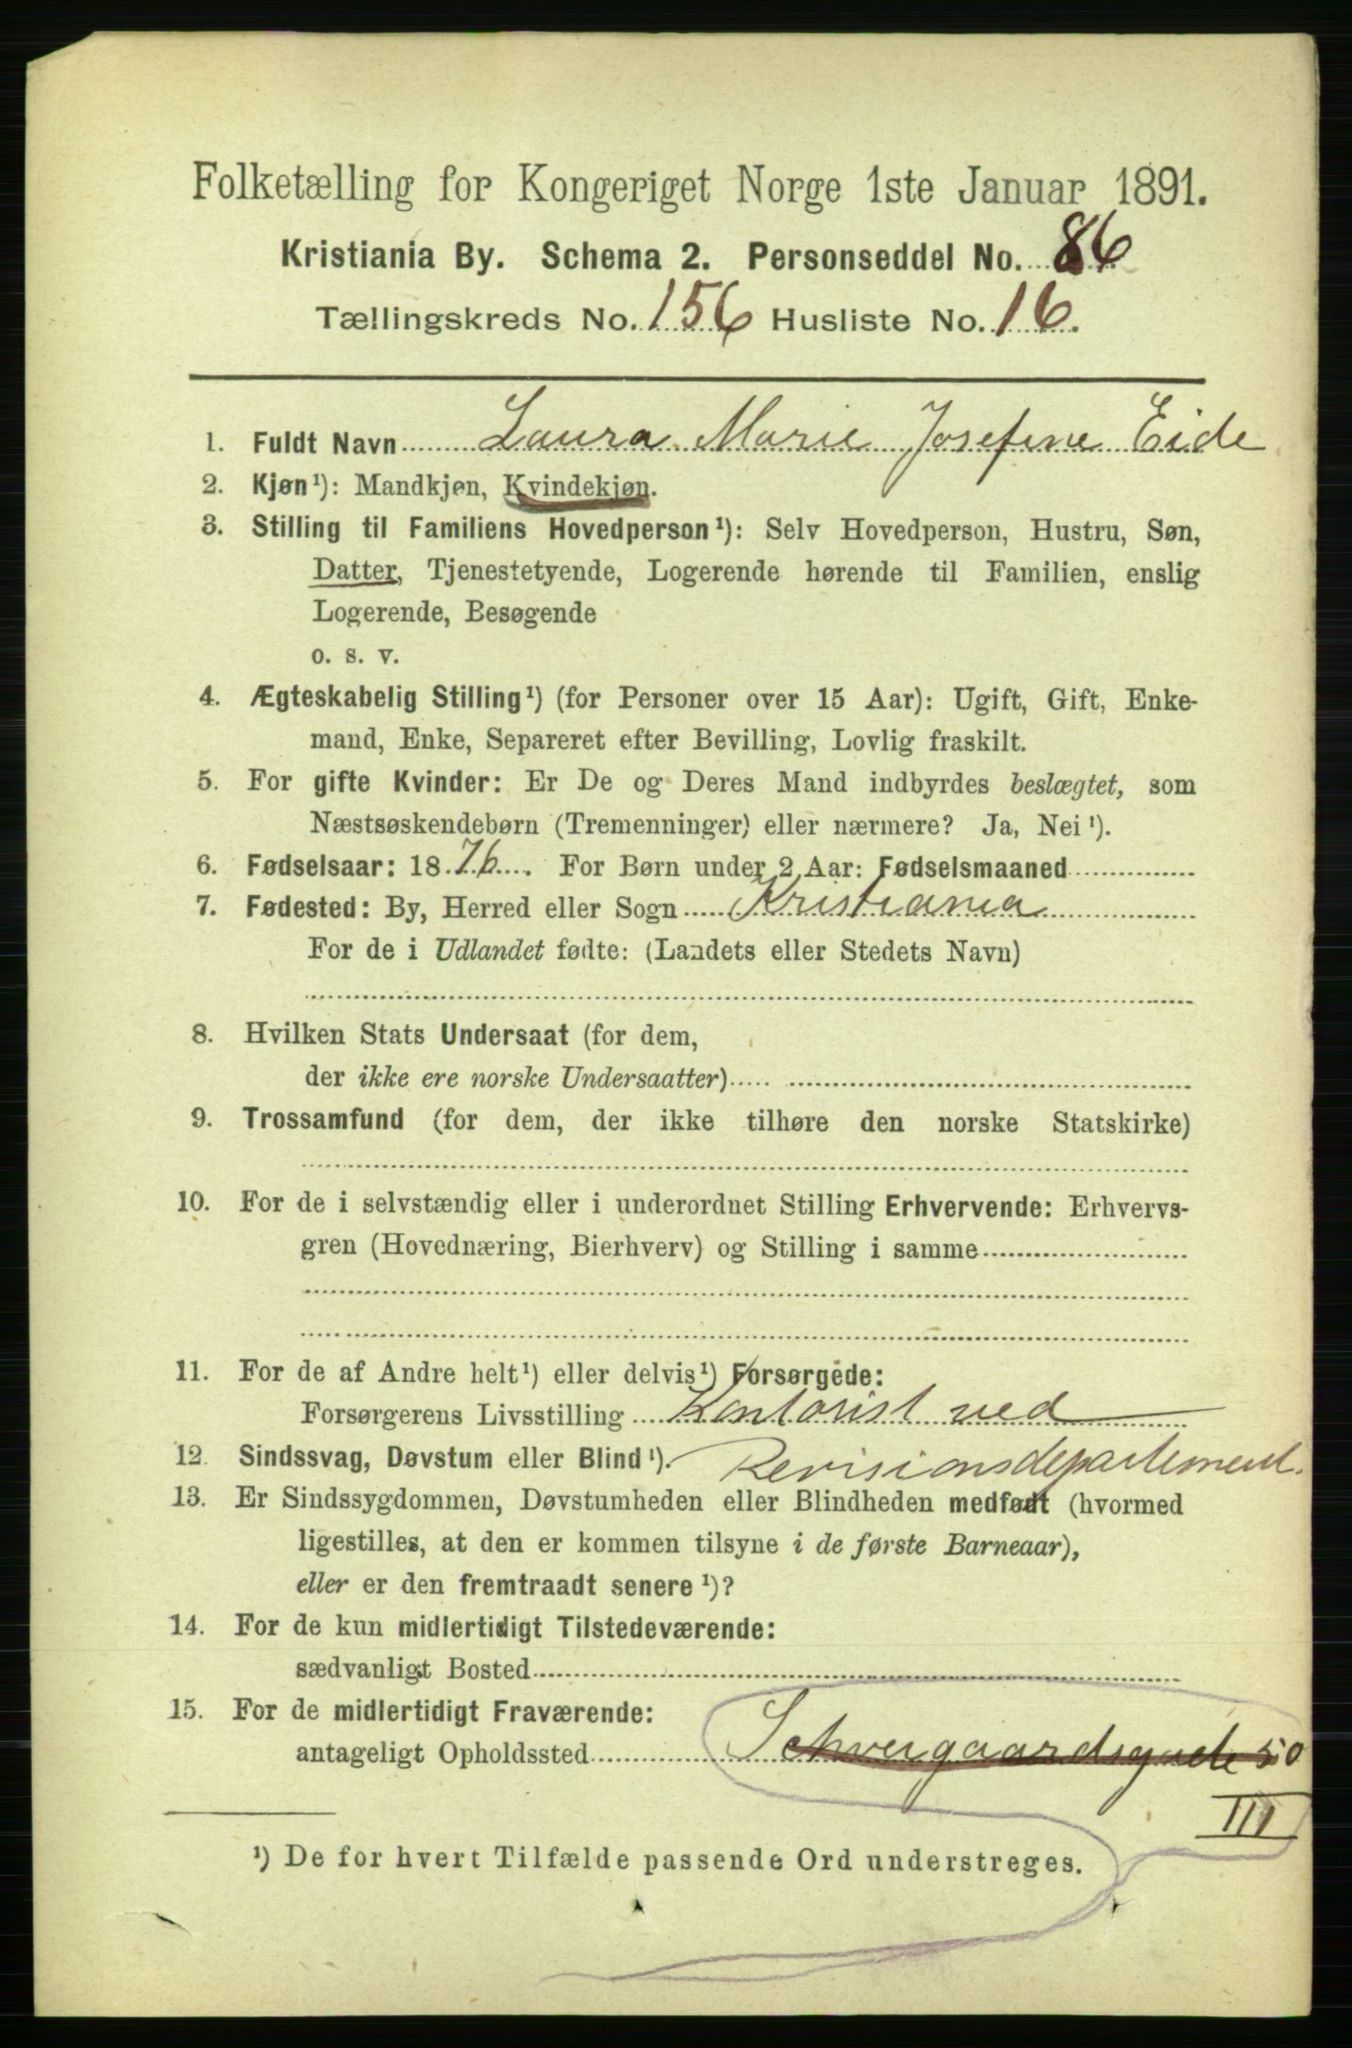 Folketælling for Kongeriget Norge 1ste Januar 1891.
Kristiania By. Schema 2. Personseddel No. 86
Tællingskreds No. 156 Husliste No. 16.
1. Fuldt Navn Laura Marie Josefine Eide
2. Kjøn¹): Mandkjøn, Kvindekjøn.
3. Stilling til Familiens Hovedperson¹): Selv Hovedperson, Hustru, Søn,
Datter, Tjenestetyende, Logerende hørende til Familien, enslig
Logerende, Besøgende
o. s. v.
4. Ægteskabelig Stilling¹) (for Personer over 15 Aar): Ugift, Gift, Enke-
mand, Enke, Separeret efter Bevilling, Lovlig fraskilt.
5. For gifte Kvinder: Er De og Deres Mand indbyrdes beslægtet, som
Næstsøskendebørn (Tremenninger) eller nærmere? Ja, Nei¹).
6. Fødselsaar: 1876. For Børn under 2 Aar: Fødselsmaaned
7. Fødested: By, Herred eller Sogn Kristiania
For de i Udlandet fødte: (Landets eller Stedets Navn)
8. Hvilken Stats Undersaat (for dem,
der ikke ere norske Undersaatter)
9. Trossamfund (for dem, der ikke tilhøre den norske Statskirke)
10. For de i selvstændig eller i underordnet Stilling Erhvervende: Erhvervs-
gren (Hovednæring, Bierhverv) og Stilling i samme
11. For de af Andre helt¹) eller delvis¹) Forsørgede:
Forsørgerens Livsstilling Kontorist ved
12. Sindssvag, Døvstum eller Blind¹). Revisionsdepartement.
13. Er Sindssygdommen, Døvstumheden eller Blindheden medfødt (hvormed
ligestilles, at den er kommen tilsyne i de første Barneaar),
eller er den fremtraadt senere¹)?
14. For de kun midlertidigt Tilstedeværende:
sædvanligt Bosted
15. For de midlertidigt Fraværende:
antageligt Opholdssted Schweigaardsgade 50
III
¹) De for hvert Tilfælde passende Ord understreges.